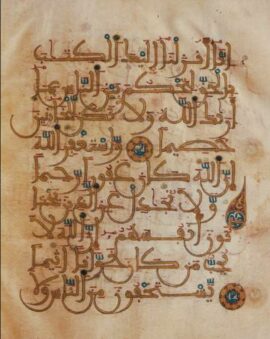 إنا أنزلنا إليك الكتاب
بالحق لتحكم بين الناس بما
أريك الله ولا تكن للخائنين
خصيما واستغفر الله
إن الله كان غفورا رحيما
ولا تجادل عن الذين يختا
نون أنفسهم إن الله لا
يحب من كان خوانا أثيما
يستخفون من الناس ولا